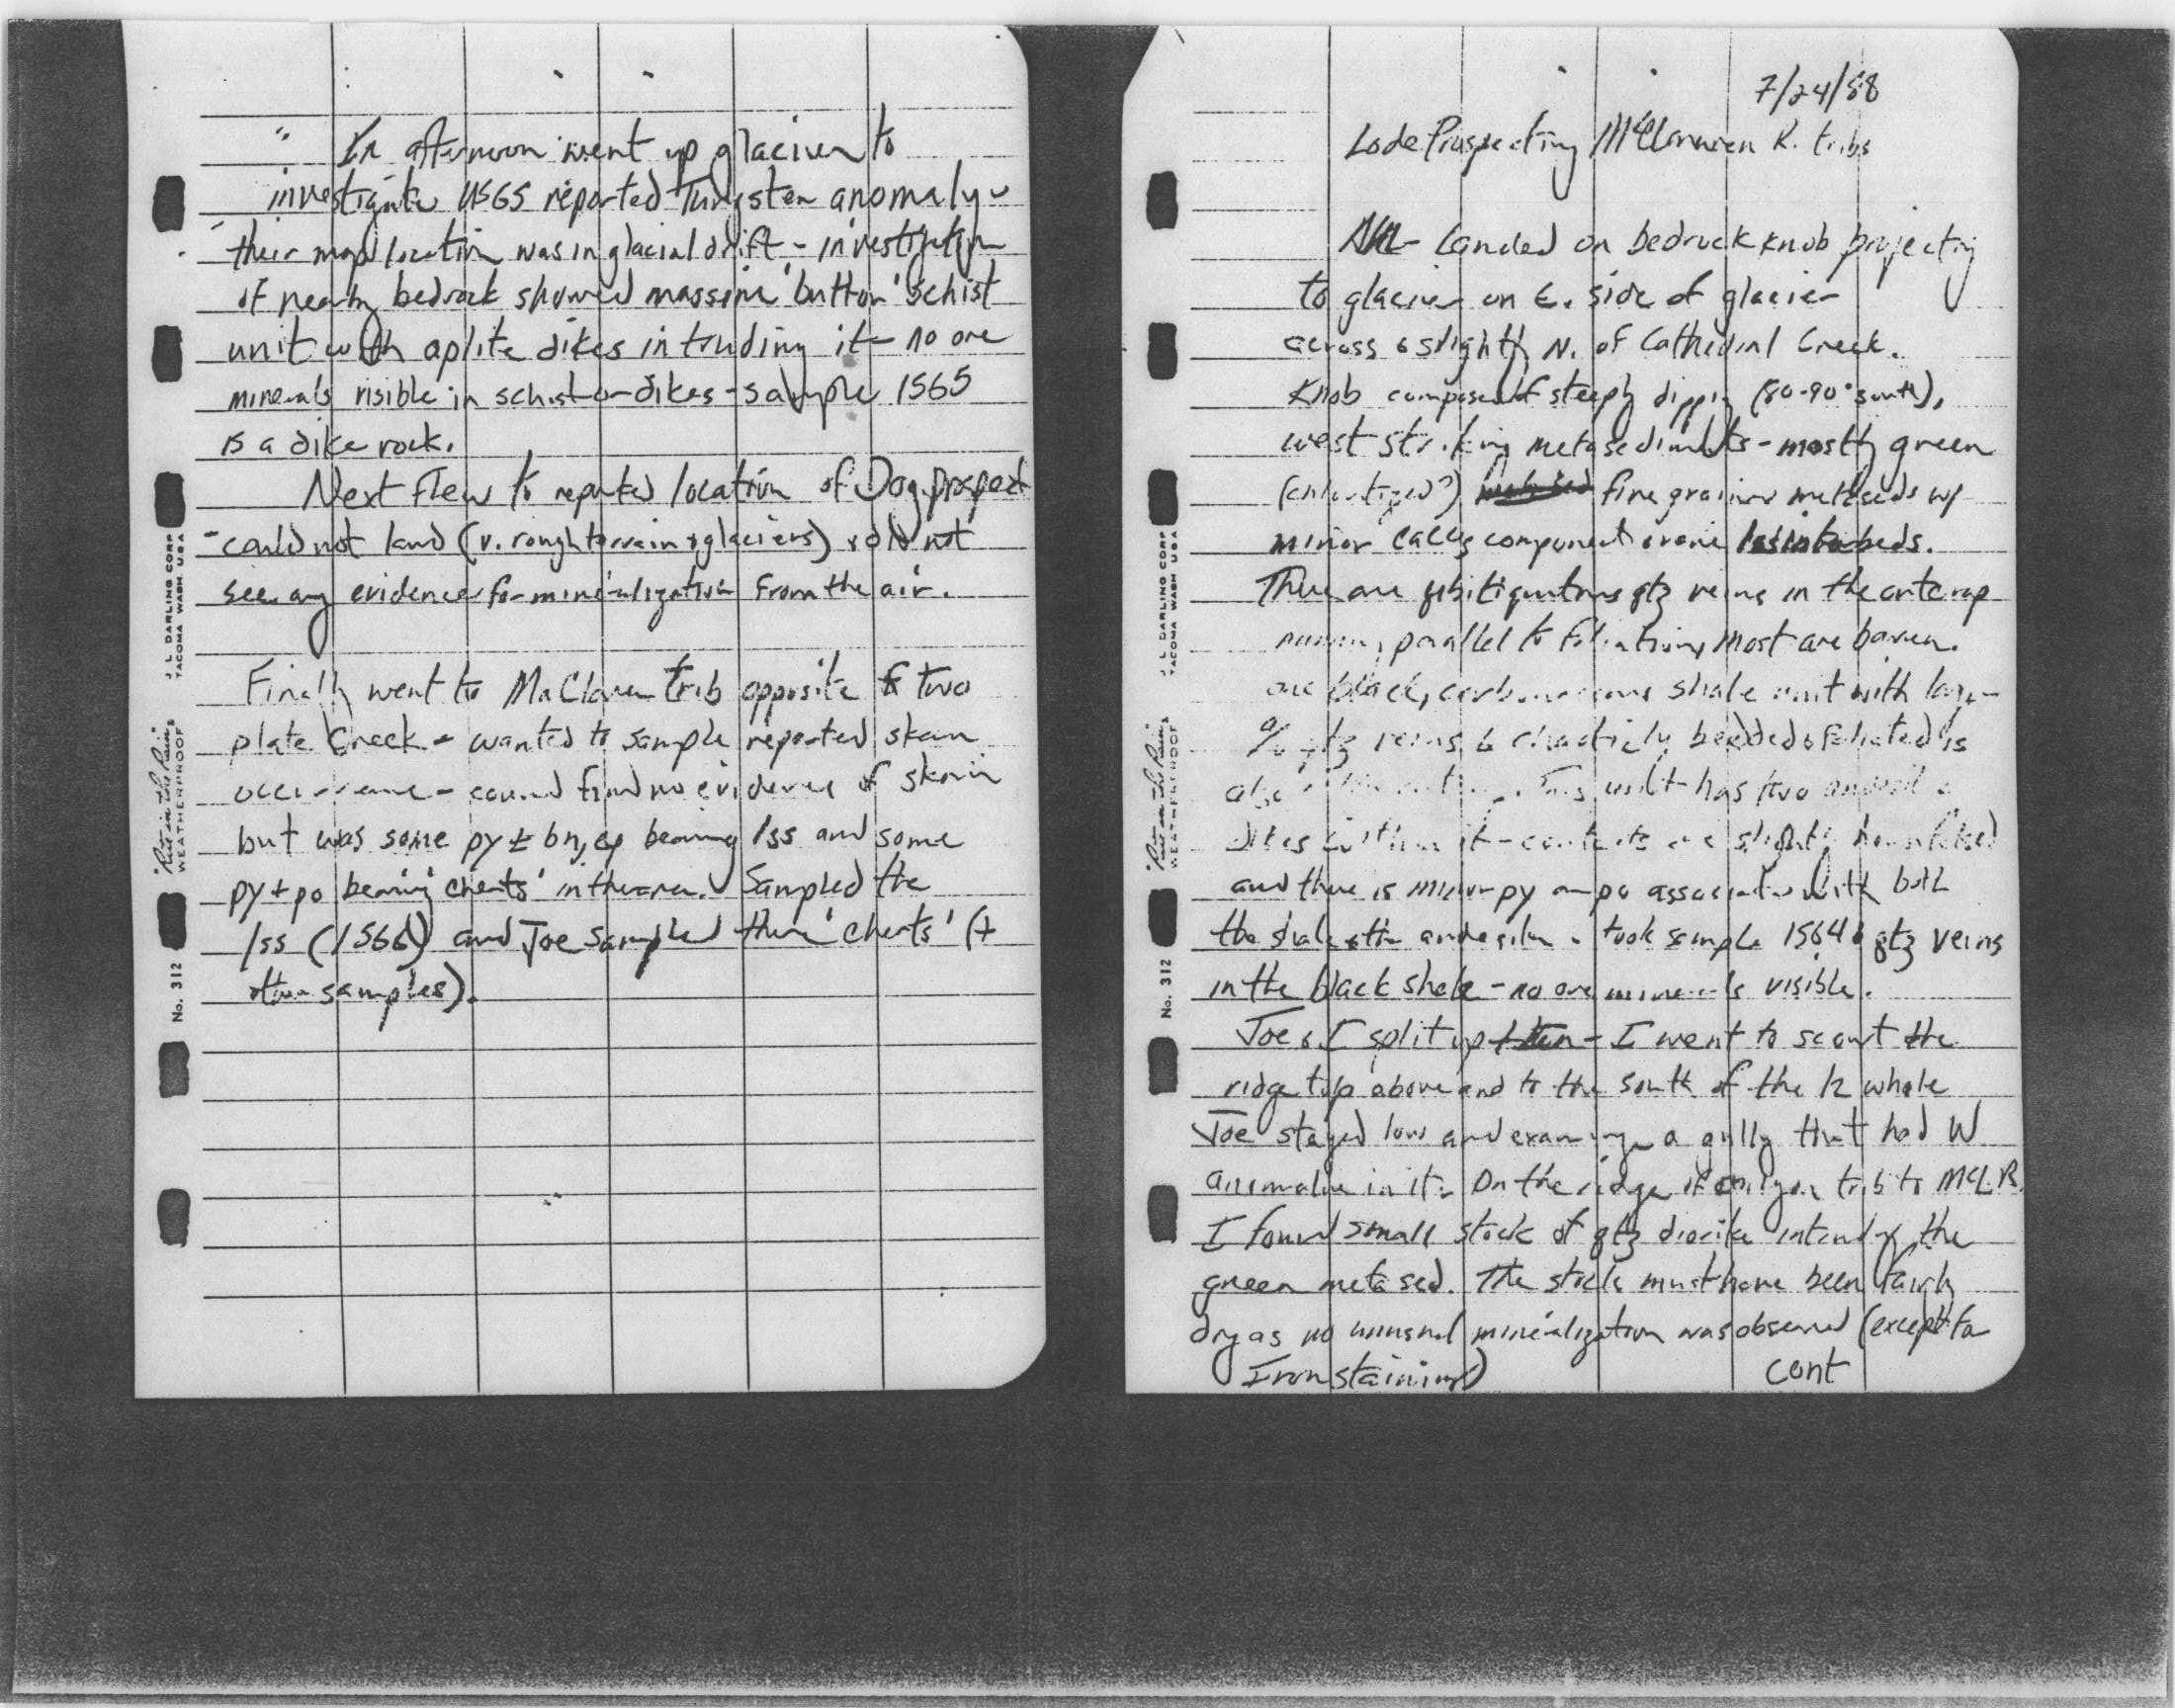 In afternoon went up glacier to
investigate USGS reported Tungsten anomaly -
their map location was in glacial drift - investigation
of nearby bedrock showed massive 'button' schist
unit with aplite dikes intruding it - no ore
minerals visible in schist or dikes - sample 1565
is a dike rock.
Next flew to reported location of Dog prospect
- could not land (v. rough terrain & glaciers) & did not
see any evidence for mineralization from the air.
Finally went to MaClaren trib opposite two
plate Creek - wanted to sample reported skarn
occurrence - found no evidence of skarn
but was some py ± bn, cp bearing lss and some
py + po bearing 'cherts' in the area. Sampled the
lss (1566) and Joe sampled the 'cherts' (+
other samples).
J. L. DARLING CORP
TACOMA WASH USA
"Rite in the Rain"
WEATHERPROOF
No. 312
7/24/88
Lode Prospecting McClaren R. tribs
Landed on bedrock knob projecting
to glacier on E. side of glacier
across & slightly N. of Cathedral Creek.
Knob composed of steeply dipping (80-90° south),
west striking metasediments - mostly green
fine grained metaseds w/
minor calcy component
There are qtz veins in the outcrop
parallel to foliation, most are barren.
one black, carbonaceous shale unit with large
% qtz veins & bedded & foliated is
also This unit has two
dikes within it - contacts are slightly hornfelsed
and there is minor py or po associated with both
the shale & the andesite - took sample 1564 qtz veins
in the black shale - no ore minerals visible.
Joe & I split up - I went to scout the
ridge top above and to the south of the
Joe stayed low and examine a gully that had W
anomalie in it. On the ridge of trib to McL R.
I found small stock of qtz diorite the
green metased. The stock must have been fairly
dry as no unusual mineralization was observed (except for
Iron staining)
cont
J. L. DARLING CORP
TACOMA WASH USA
"Rite in the Rain"
WEATHERPROOF
No. 312